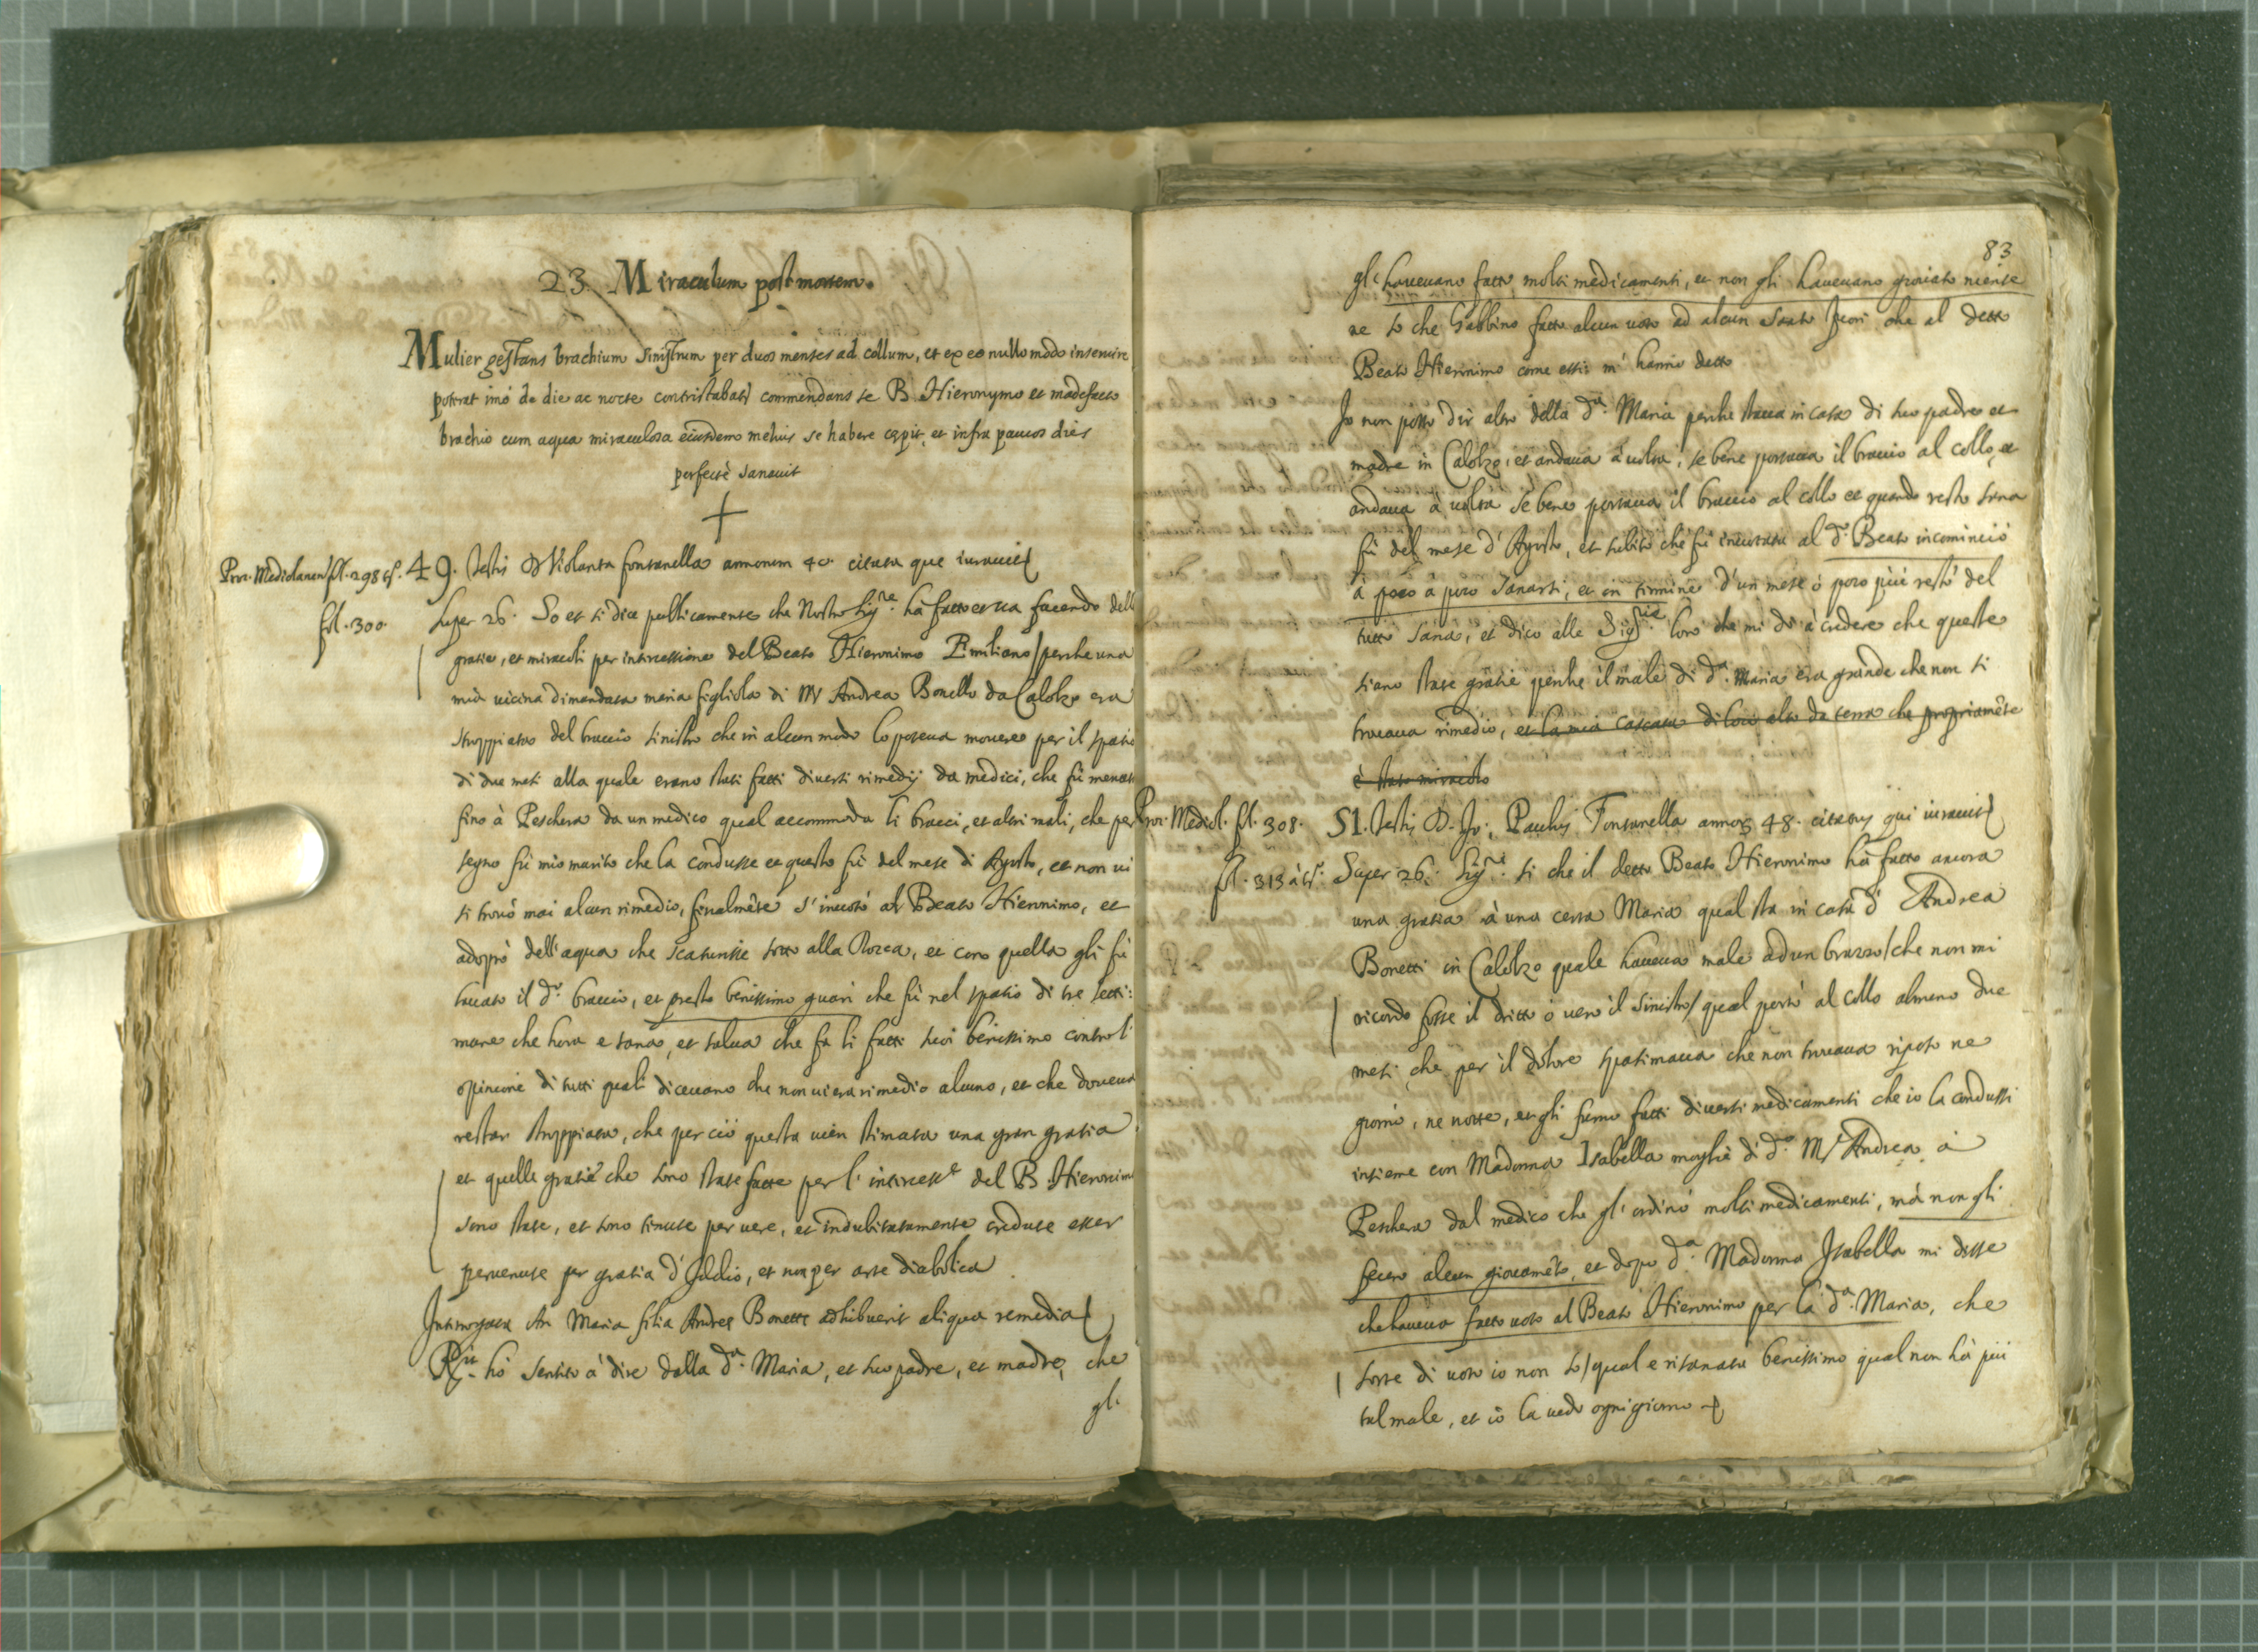 23. Miraculum post mortem.
Mulier gestans brachium sinistrum per duos menses ad collum, et ex eo nullo modo inservire
poterat imò de die ac nocte contristabatr commendans se B. Hieronymo et madefacto
brachio cum aqua miraculosa eiusdem melius se habere cepit, et infra paucos dies
perfectè sanavit
Proc. Mediolanen. fol. 298
49. Testis D. Violanta fontanella annorum 40. citata que iuravit
fol. 300.
Super 26. So et si dice publicamente che Nostro Sigre. hà fatto et va facendo delle
gratie, et miracoli per intercessione del Beato Hieronimo Emiliano / perche una
mia vicina dimandata maria figliola di Mr Andrea Bonetto da Calolzo era
stroppiata del braccio sinistro che in alcun modo lo poteva movere per il spatio
di due mesi alla quale erano stati fatti diversi rimedij da medici, che fù menata
fino à Peschera da un medico qual accommoda li bracci, et altri mali, che per
segno fù mio marito che la condusse et questo fù del mese di Agosto, et non vi
si trovò mai alcun rimedio, finalmēte s'invotò al Beato Hieronimo, et
adoprò dell'aqua che scaturisse sotto alla Rocca, et con quella gli fù
toccato il do. braccio, et presto benissimo guarì che fù nel spatio di tre setti:
mane che hora e sana, et salva che fa li fatti suoi benissimo contro l'
opinione di tutti quali dicevano che non vi era rimedio alcuno, et che doveva
restar stroppiata, che per ciò questa vien stimata una gran gratia
et quelle gratie che sono state fatte per l'intercess.e del B. Hieronimo
sono state, et sono tenute per vere, et indubitatamente credute esser
pervenute per gratia d'Iddio, et non per arte diabolica
Interrogata An Maria filia Andreę Bonetti adhibuerit aliqua remedia
Rit. hò sentito à dire dalla da. Maria, et suo padre, et madre, che
gl'
83
gl' havevano fatto molti medicamenti, et non gli havevano giovato niente
ne so che habbino fatto alcun voto ad alcun Santo fuori che al detto
Beato Hieronimo come essi m'hanno detto
Io non posso dir altro della da. Maria perche stava in casa di suo padre et
madre in Calolzo, et andava à volta, se bene portava il braccio al collo, et
andava à volta se bene portava il braccio al collo et quando restò sana
fù del mese d'Agosto, et subito che fù invotata al do. Beato incominciò
à poco à poco sanarsi, et in termine d'un mese ò poco più restò del
tutto sana, et dico alle Sigrie. loro che mi dò à credere che queste
siano state gratie perche il male di da. Maria era grande che non si
trovava rimedio, et la mia cascata di loco alto da terra che propriamēte
è stato miracolo
Proc. Mediol. fol. 308.
51. Testis D. Jo: Paulus Fontanella annor. 48. citatus qui iuravit
fol. 313
Super 26. Sigri. si che il detto Beato Hieronimo hà fatto ancora
una gratia à una certa Maria qual sta in casa d'Andrea
Bonetti in Calolzo quale haveva male ad un brazzo / che non mi
ricordo fosse il dritto ò vero il sinistro / qual portò al collo almeno due
mesi che per il dolore spasimava che non trovava riposo ne
giorno, ne notte, et gli furno fatti diversi medicamenti che io la condussi
insieme con Madonna Isabella moglie di do. Mr Andrea à
Peschera dal medico che gl'ordinò molti medicamenti, mà non gli
fecero alcun giovamēto, et dopo da. Madonna Isabella mi disse
che haveva fatto voto al Beato Hieronimo per la da. Maria, che
sorte di voto io non so / qual e risanata benissimo qual non hà più
tal male, et io la vedo ogni giorno